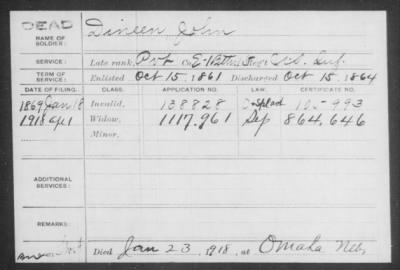 DEAD
NAME OF SOLDIER: Dineen John
SERVICE: Late rank, Pvt Co. E-12 Reg't Inf.
TERM OF SERVICE: Enlisted Oct 15, 1861 Discharged Oct 15, 1864
DATE OF FILING. CLASS. APPLICATION NO. LAW. CERTIFICATE NO.
1869 Jan 18 Invalid, 138828 105-993
1918 Apl 1 Widow, 1117.961 Sep 864,646
Minor,
ADDITIONAL SERVICES:
REMARKS:
Died Jan 23, 1918, at Omaha Neb.